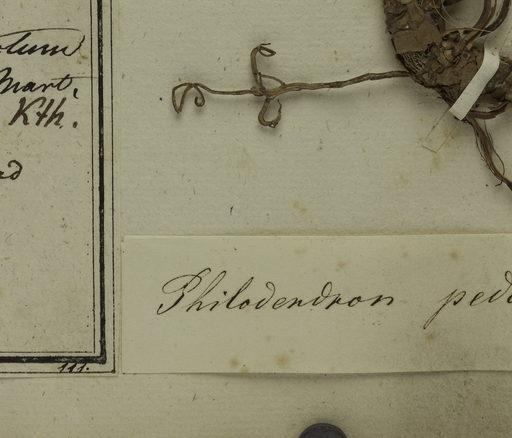 Mart.
Kth.
111.
Philodendron ped